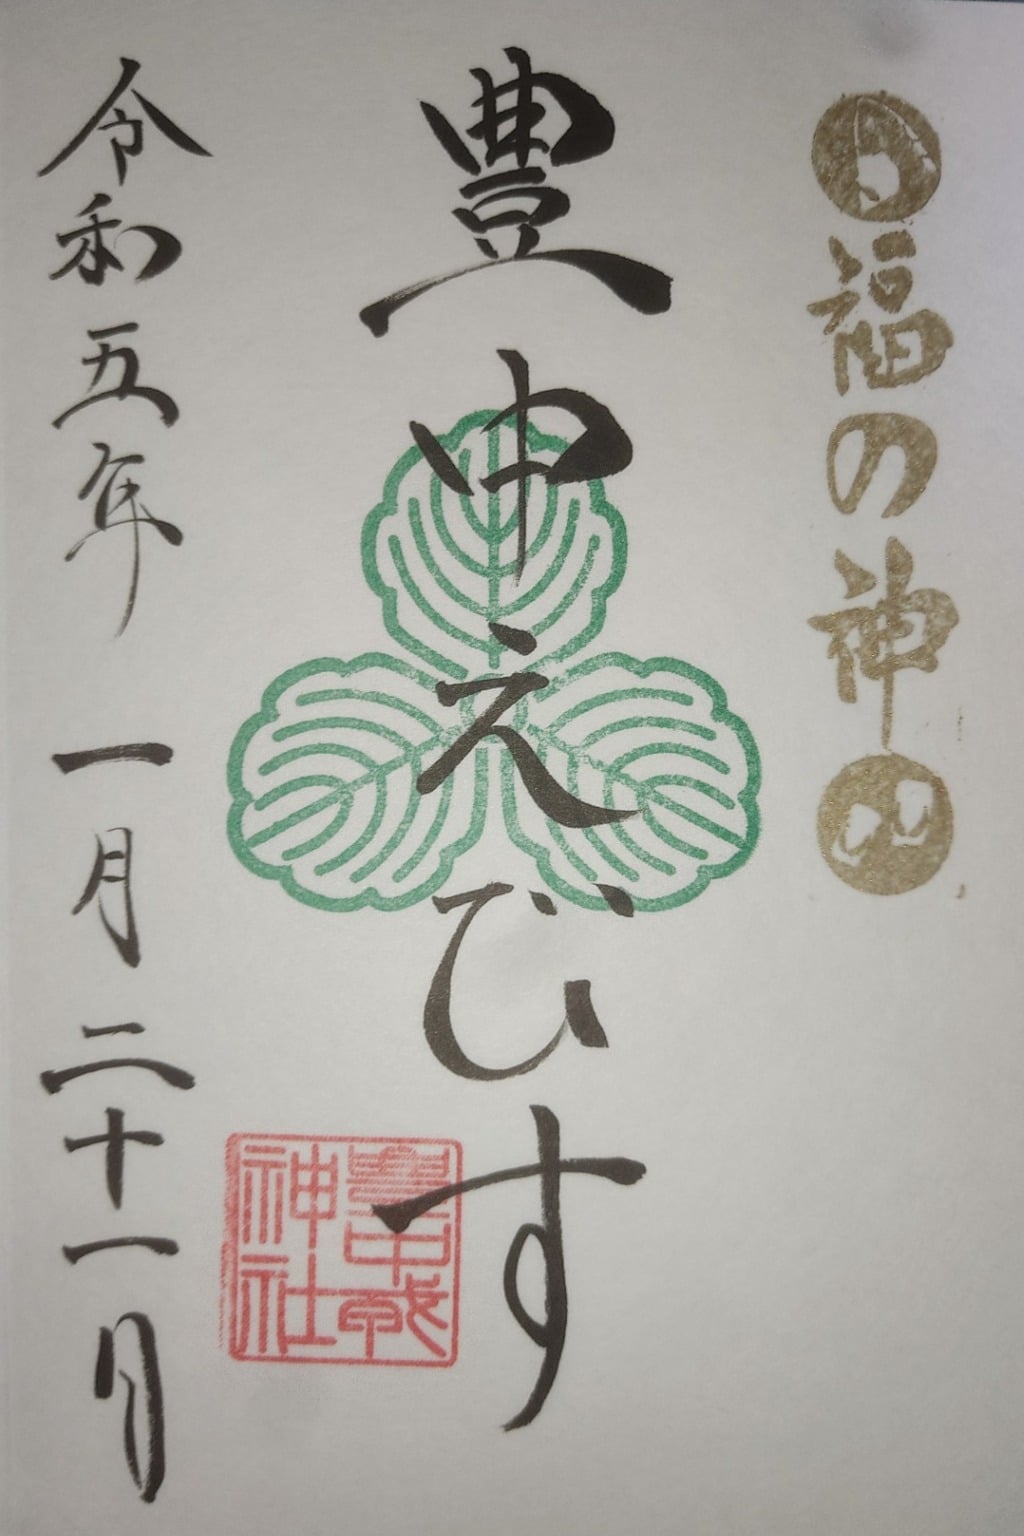 福の神
豊中えびす
豊中戎
神社
令和五年 一月二十一日